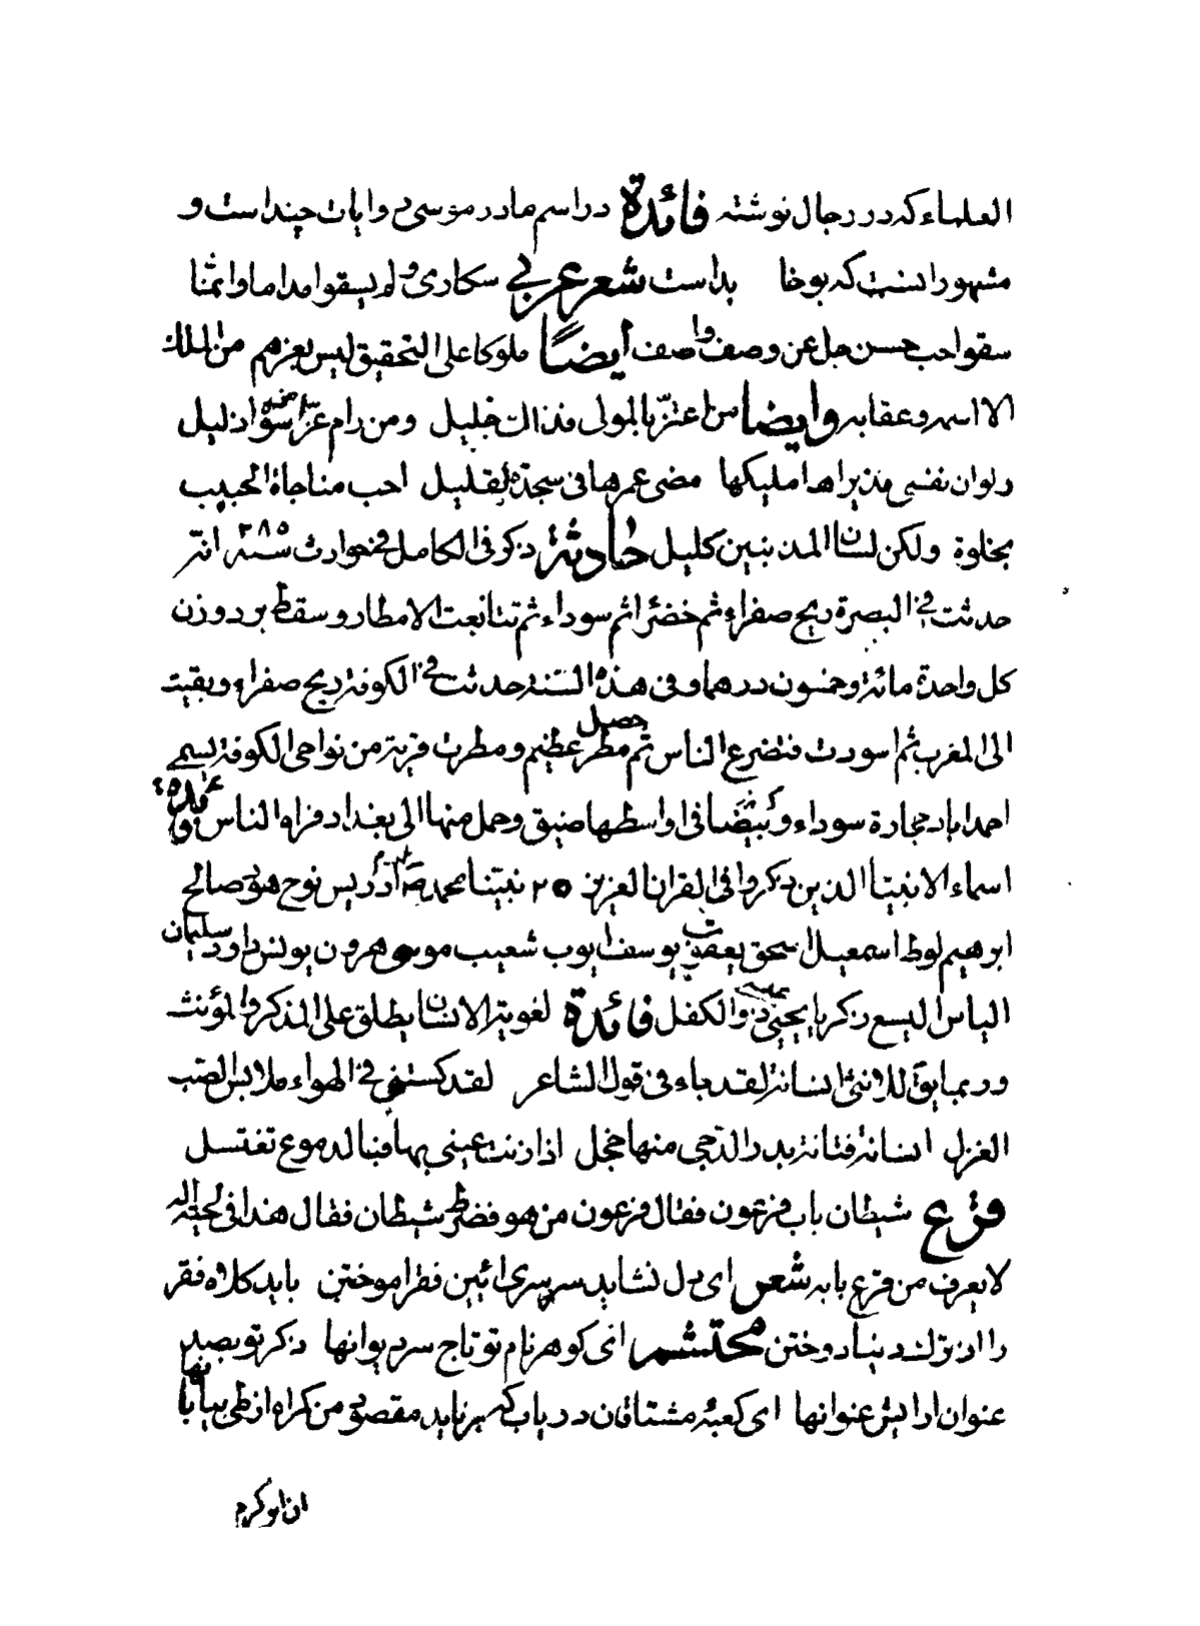 العلماء كه در رجال نوشته فائدة در اسم مادر موسى روايات چند است و
مشهور اينست كه يوخا بد است شعر عربي سكارى ولم يسقوا مداما وانما
سقوا حب حسن جل عن وصف واصف أيضًا ملوكا على التحقيق ليس بغيرهم من الملك
الا اسمه وعقابه وايضا من اعتزّ بالمولى فذاك جليل ومن رام عزّا من سواه ذليل
ولوان نفسى مذ براها مليكها مضى عمرها فى سجدة لقليل احب مناجاة الحبيب
بخلوة ولكن لسان المذنبين كليل حادثة ذكر فى الكامل فى حوادث سنه ٢٨٥ انه
حدثت فى البصرة ريح صفراء ثم خضراء ثم سوداء ثم تتابعت الامطار وسقط برد وزن
كل واحدة مائة وخمسون درهما وفى هذه السنة حدثت فى الكوفة ريح صفراء وبقيت
الى المغرب ثم اسودت فتضرع الناس ثم حصل مطر عظيم ومطرت قرية من نواحى الكوفة يسمى
احمداباد حجارة سوداء وبيضا فى اواسطها ضيق وحمل منها الى بغداد فراه الناس فائدة
اسماء الانبيا الذين ذكروا فى القران العزيز ٢٥ نبينا محمد ص آدم ادريس نوح هود صالح
ابرهيم لوط اسمعيل اسحق يعقوب يوسف ايوب شعيب موسى هرون يونس داود سليمان
الياس اليسع زكريا يحيى عيسى ذوالكفل فائدة لغوية الانسان يطلق على المذكر والمؤنث
وربما يق للانثى انسانة لقد جاء فى قول الشاعر لقد كستنى فى الهواء ملابس الصب
الغزل انسانة فتانة بدر الدجى منها خجل اذا زنت عينى بها فبالدموع تغتسل
قرع شيطان باب فرعون فقال فرعون من هو فضرط شيطان فقال هذا فى لحية اله
لا يعرف من قرع بابه شعر اى دل نشايد سرسرى ائين فقر اموختن بايد كلاه فقر
را از ترك دنيا دوختن محتشم اى كوهر نام تو تاج سر ديوانها ذكر تو بصد
عنوان ارايش عنوانها اى كعبه مشتاقان درياب كه بر نايد مقصود من كمراه از طى بيابانها
ان ابو كرم